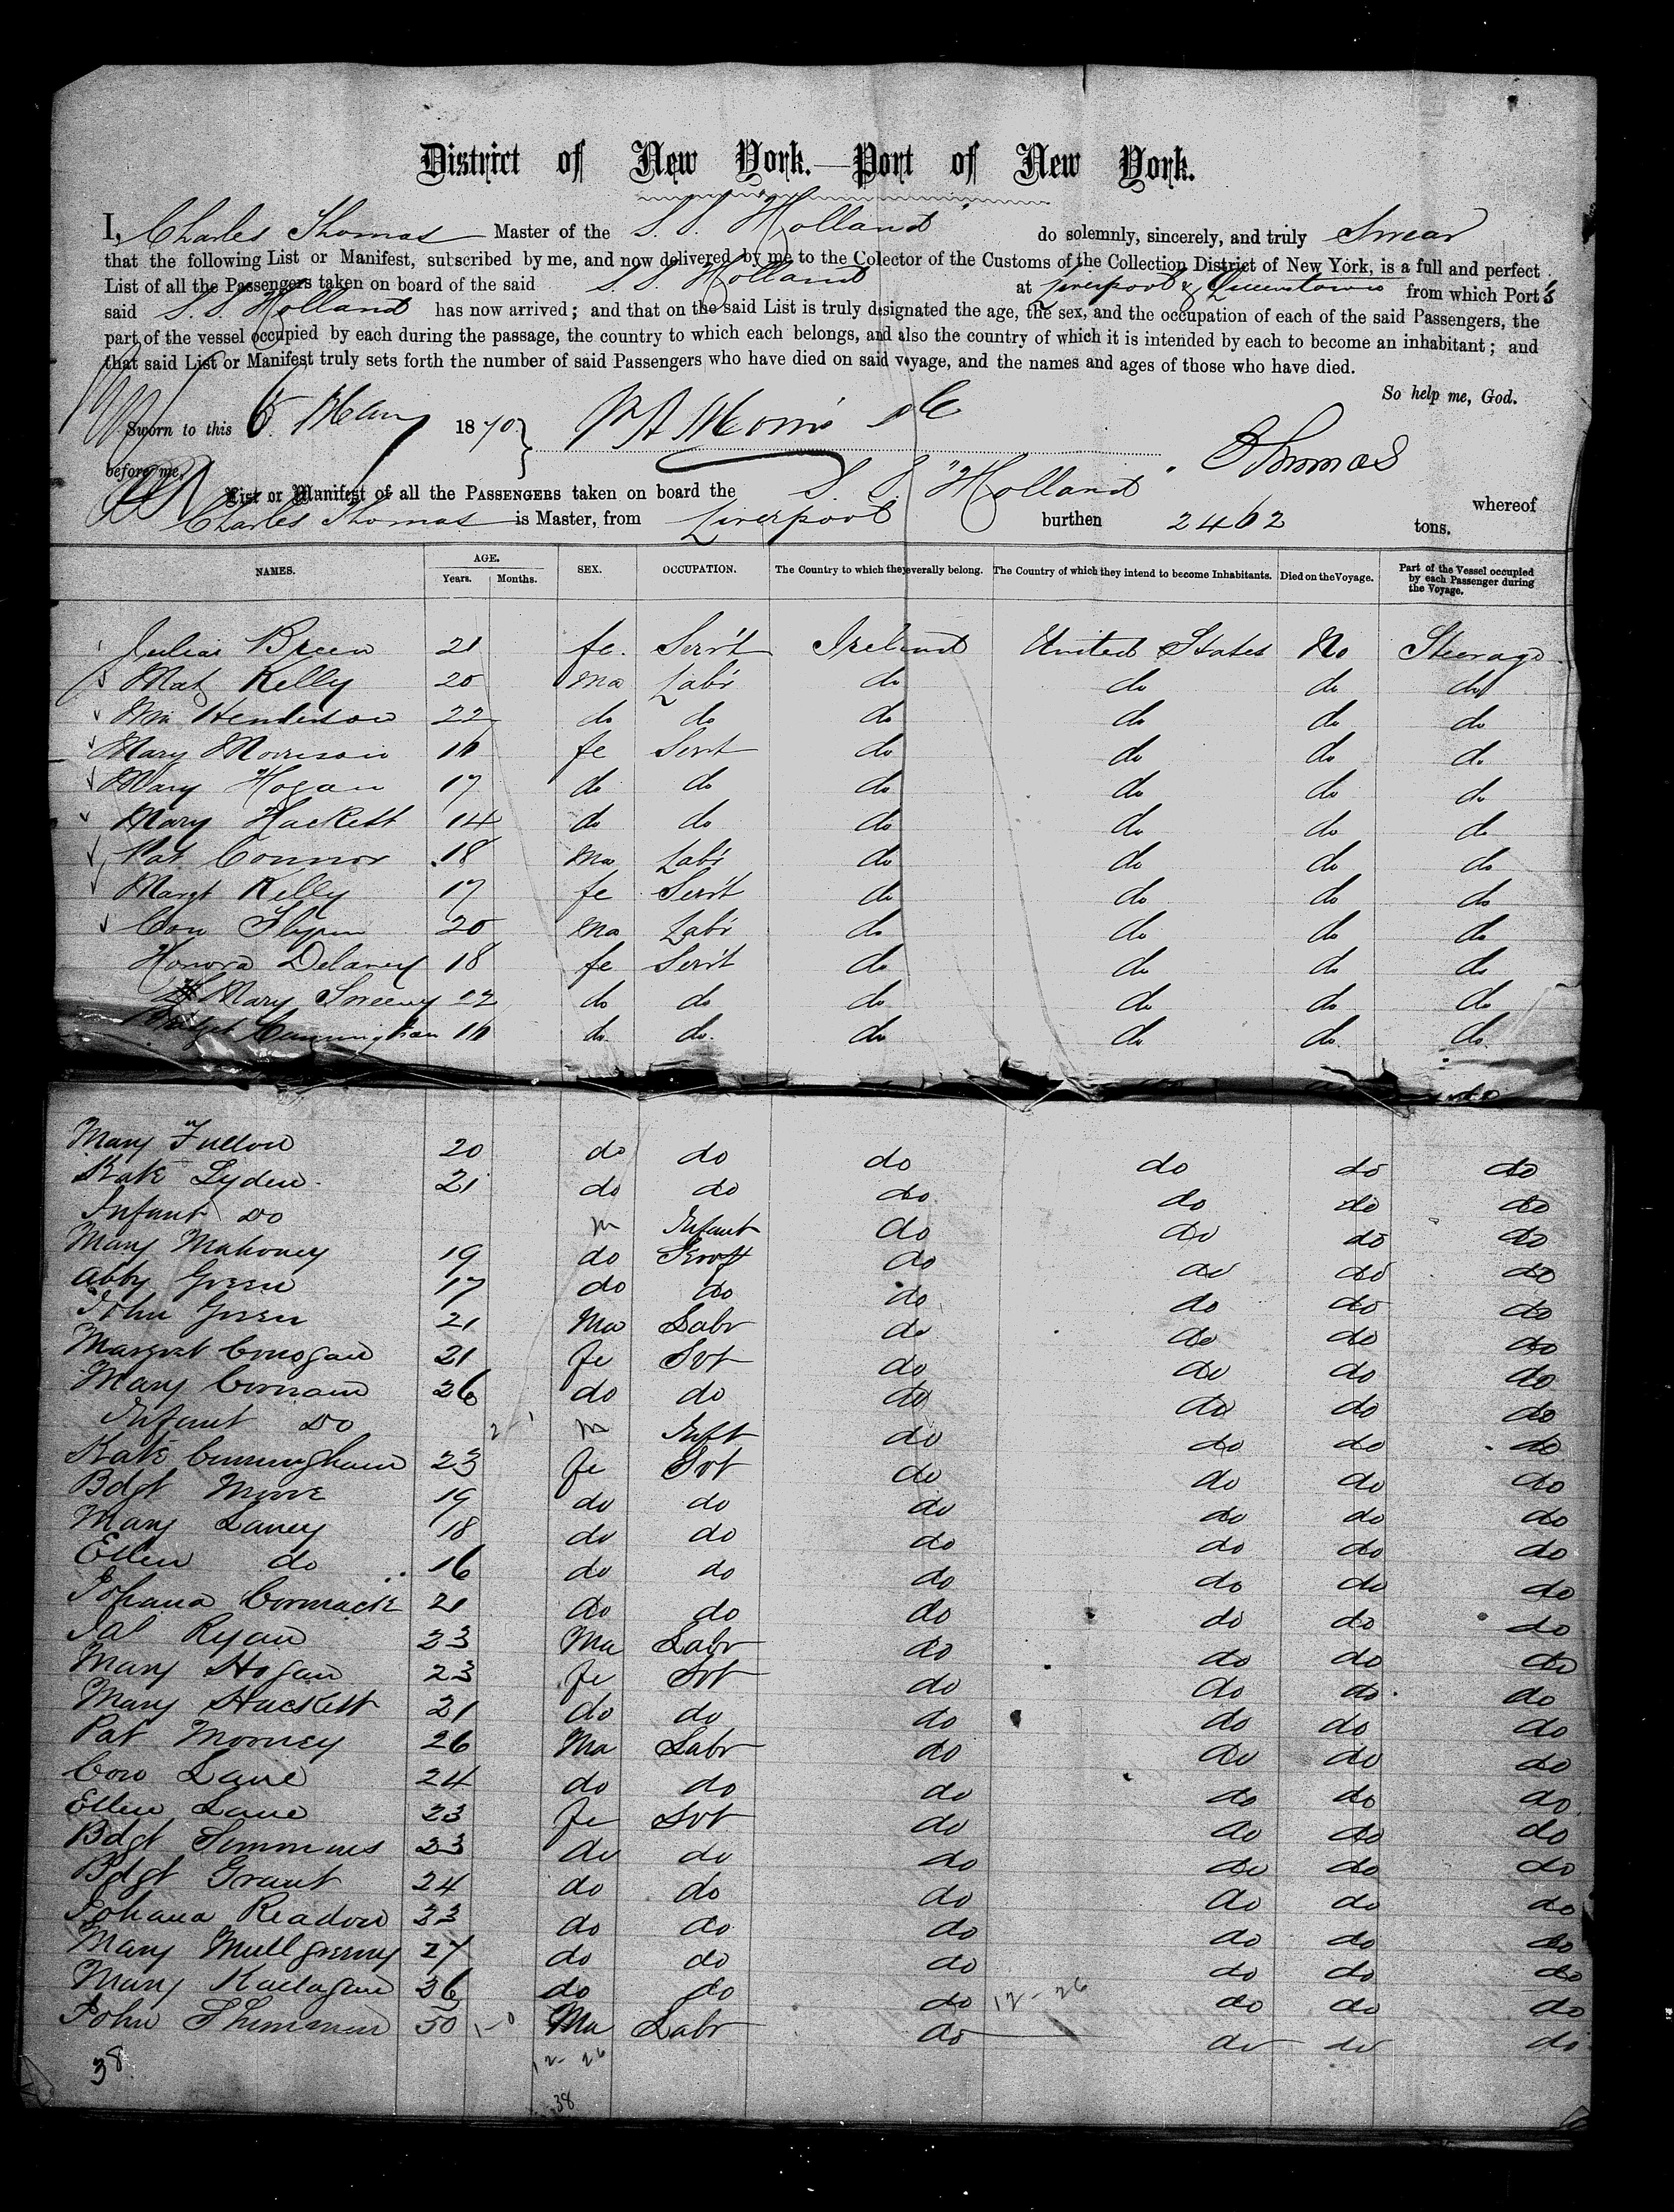 District of New York.—Port of New York.
I, Charles Thomas Master of the S. S. Holland do solemnly, sincerely, and truly Swear
that the following List or Manifest, subscribed by me, and now delivered by me to the Colector of the Customs of the Collection District of New York, is a full and perfect
List of all the Passengers taken on board of the said S. S. Holland at Liverpool & Queenstown from which Port's
said S. S. Holland has now arrived; and that on the said List is truly designated the age, the sex, and the occupation of each of the said Passengers, the
part of the vessel occupied by each during the passage, the country to which each belongs, and also the country of which it is intended by each to become an inhabitant; and
that said List or Manifest truly sets forth the number of said Passengers who have died on said voyage, and the names and ages of those who have died.
So help me, God.
Sworn to this 6 May 1870
before me. CThomas
List or Manifest of all the PASSENGERS taken on board the S. S. "Holland" whereof
Charles Thomas is Master, from Liverpool burthen 2462 tons.
NAMES. AGE. Years. Months. SEX. OCCUPATION. The Country to which they severally belong. The Country of which they intend to become Inhabitants. Died on the Voyage. Part of the Vessel occupied by each Passenger during the Voyage.
Julia Breen 21 fe. Serv't Ireland United States No Steerage
Mat Kelly 20 ma Lab'r do do do do
Wm Henderson 22 do do do do do do
Mary Morrison 16 fe Servt do do do do
Mary Hogan 17 do do do do do do
Mary Hackett 14 do do do do do do
Pat Connor 18 ma Lab'r do do do do
Margt Kelly 17 fe Serv't do do do do
Con Flynn 20 ma Lab'r do do do do
Honora Delaney 18 fe Serv't do do do do
Mary Sweeny 22 do do do do do do
Bridget Cunningham 16 do do. do do do. do.
Mary Fullon 20 do do do do do do
Kate Lyden 21 do do do do do do
Infant Do m Infant do do do do
Mary Mahoney 19 do do do do do
Abby Green 17 do do do do do do
John Green 21 Ma Labr do do do do
Margret 21 fe Svt do do do do
Mary 26 do do do do do do
Infant Do 2 m Inft do do do do
Kate Cunningham 23 fe Svt do do do do
Bdgt Moore 19 do do do do do do
Mary Laney 18 do do do do do do
Ellen do 16 do do do do do do
Johana Cormack 21 do do do do do do
Ryan 23 Ma Labr do do do do
Mary Hogan 23 fe Svt do do do do
Mary Hackett 21 do do do do do do
Pat Mooney 26 Ma Labr do do do do
Con Lane 24 do do do do do do
Ellen Lane 23 fe Svt do do do do
Bdgt Simmons 23 do do do do do do
Bdgt Grant 24 do do do do do do
Johana Readon 33 do do do do do do
Mary 27 do do do do do do
Mary 36 do do do 12-26 do do do
John 50 1-0 Ma Labr do do do do
38 12-26
38